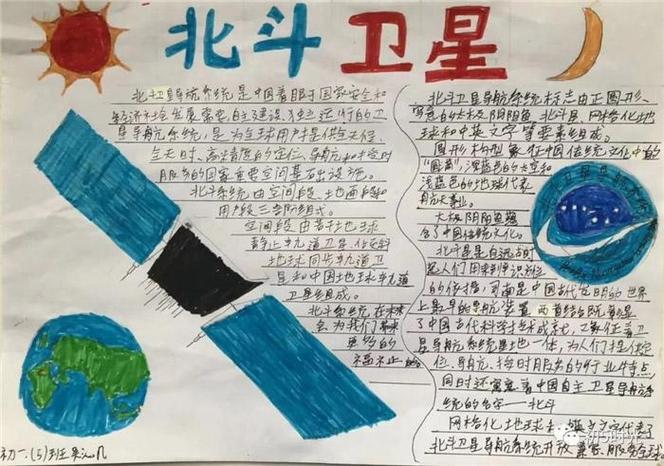 北斗卫星
北斗卫星导航系统是中国着眼于国家安全和
经济社会发展需要,自主建设、独立运行的卫
星导航系统,是为全球用户提供全天候、
全天时、高精度的定位、导航和授时
服务的国家重要空间基础设施。
北斗系统由空间段、地面段和
用户段三部分组成。
空间段由若干地球
静止轨道卫星、倾斜
地球同步轨道卫
星和中国地球轨道
卫星组成。
北斗系统在未来
会为我们带来
更多的
初一.(5)班
北斗卫星导航系统标志由正圆形、
写意的太极阴阳鱼、北斗星、网格化地
球和中英文字等要素组成。
圆形构型象征中国传统文化中的
"圆满",深蓝色的太空和
浅蓝色的地球代表
航天事业。
太极阴阳鱼蕴
含了中国传统文化。
北斗星是自远古时
起人们用来辨识方位
的依据,司南是中国古代发明的世界
上最早的导航装置,两者结合既彰显
了中国古代科学技术成就,又象征着卫
星导航系统星地一体,为人们提供定
位、导航、授时服务的行业特点
同时还寓意着中国自主卫星导航系
统的名字——北斗
网格化地球和
北斗卫星导航系统开放兼容、服务全球